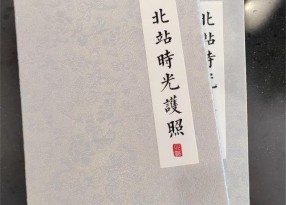 北站時光護照
北站時光